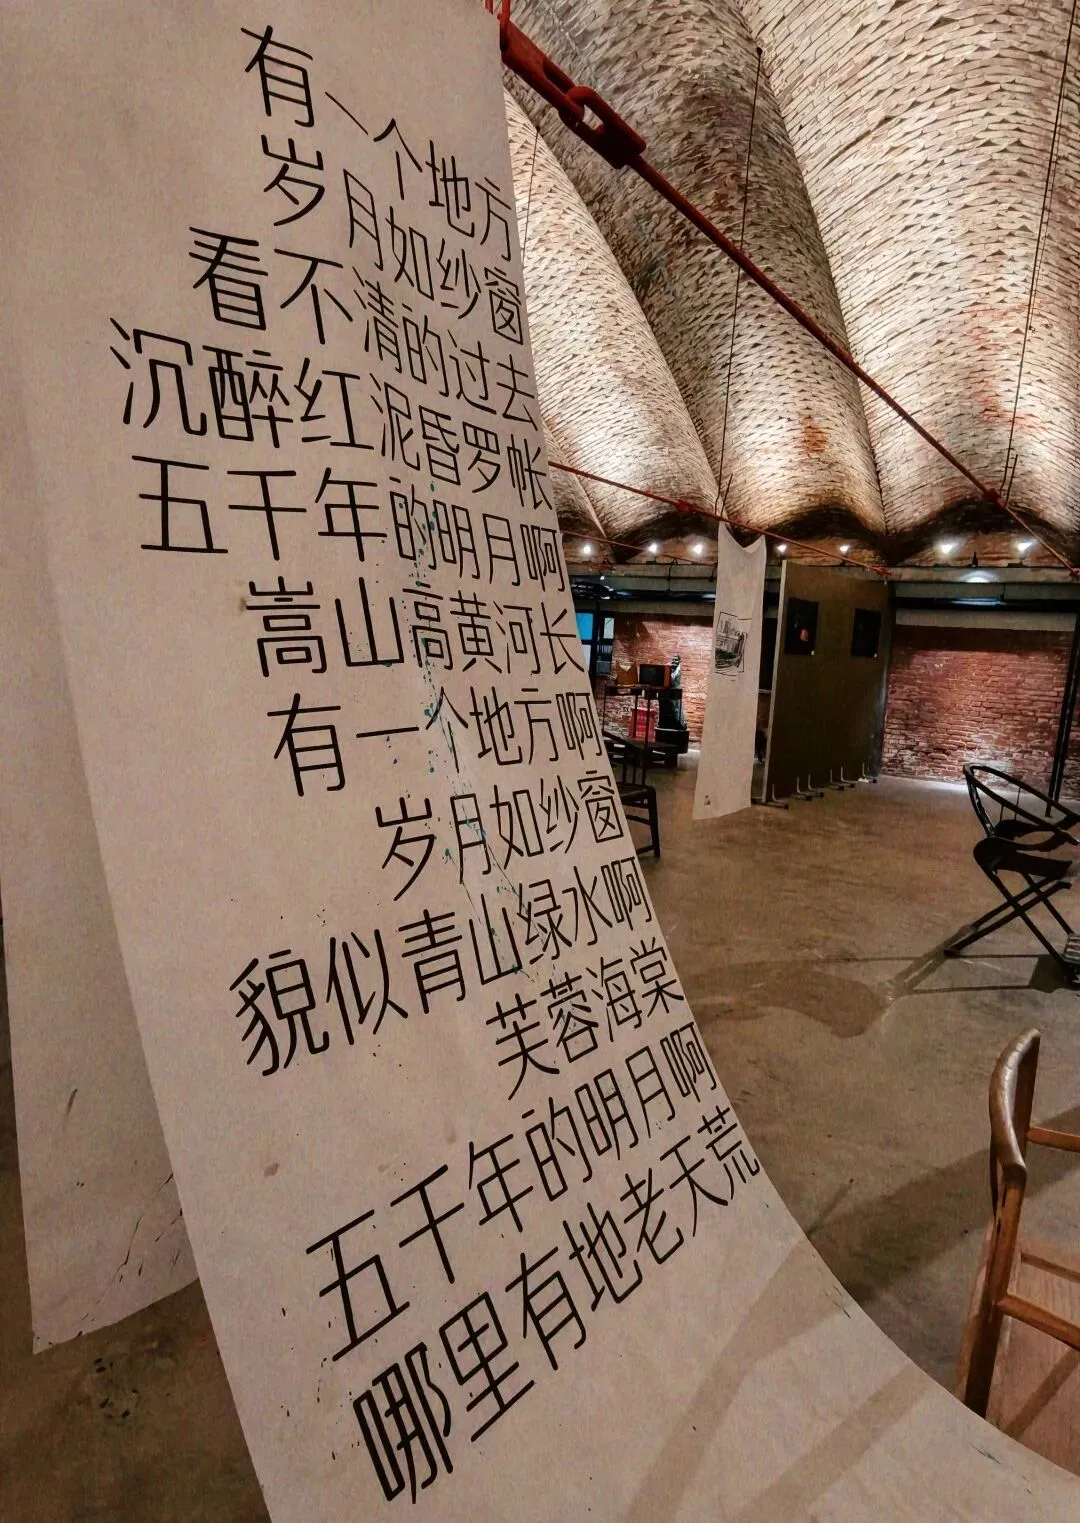 有一个地方
岁月如纱窗
看不清的过去
沉醉红泥昏罗帐
五千年的明月啊
嵩山高黄河长
有一个地方啊
岁月如纱窗
貌似青山绿水啊
芙蓉海棠
五千年的明月啊
哪里有地老天荒